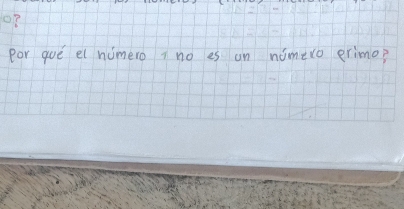 o?
Por qué el número 1 no es un número primo?